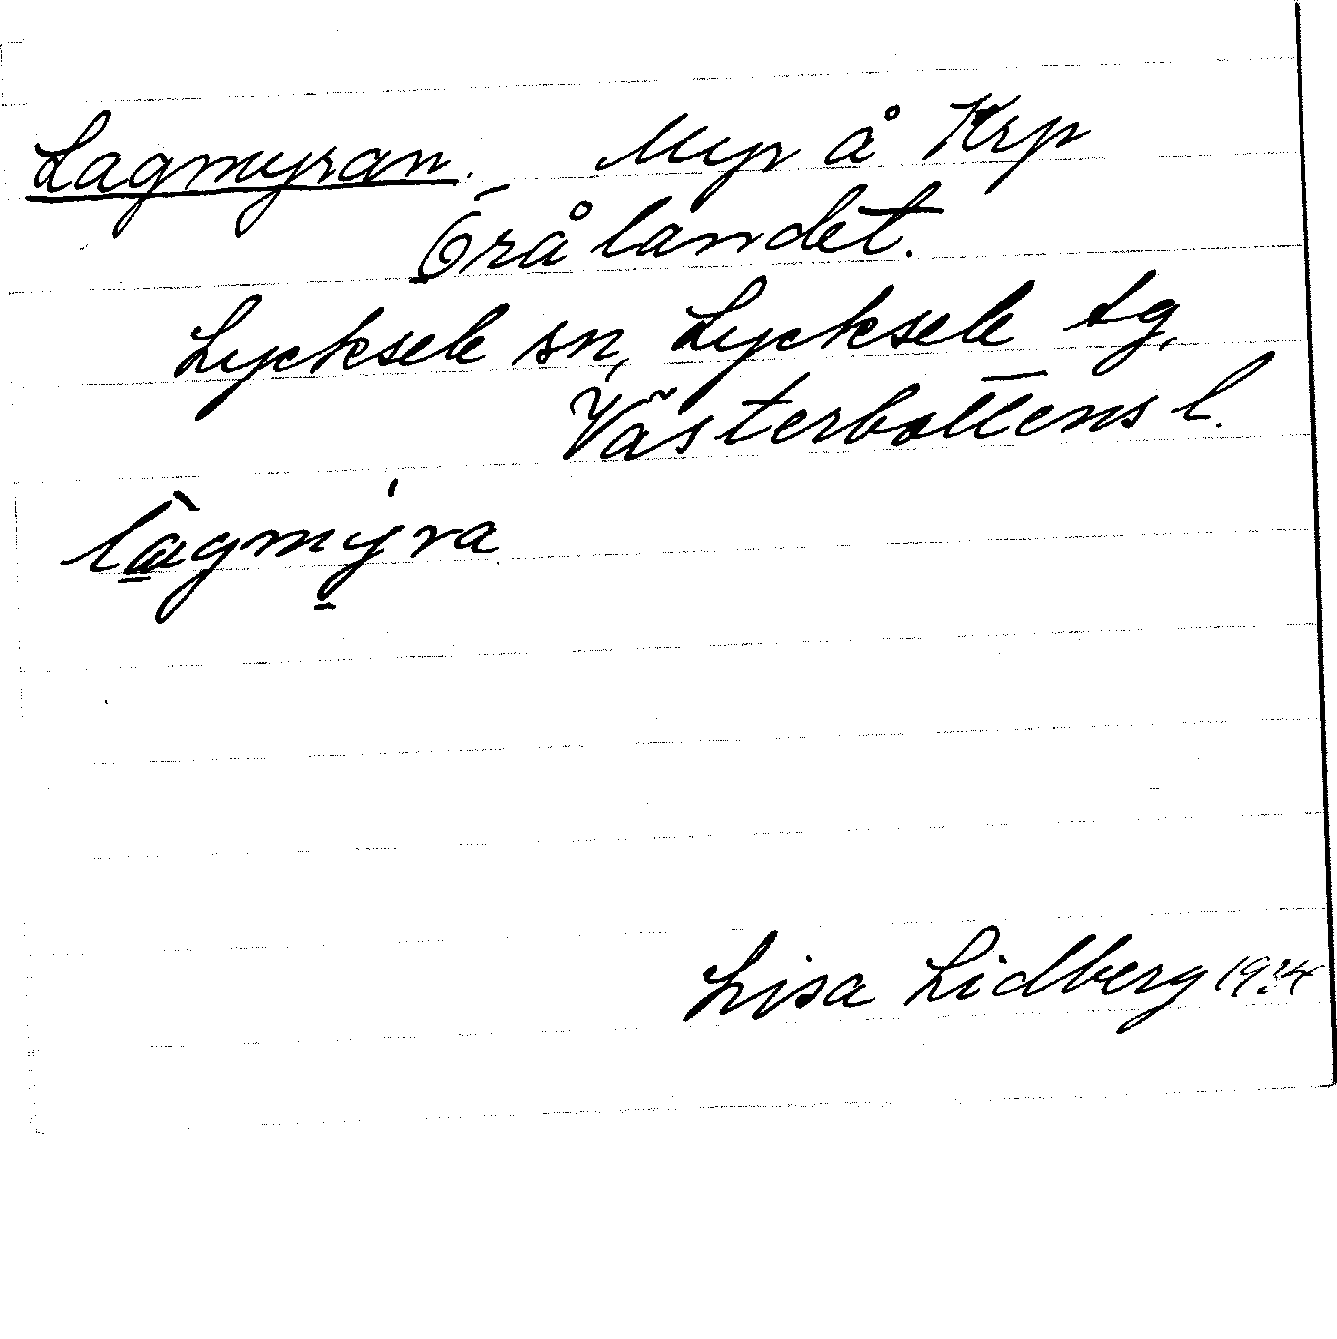 Lagmyran. Myr å Krp
Örålandet.
Lycksele sn, Lycksele tg,
Västerbottens l.
lagmyra
Lisa Lidberg 1934